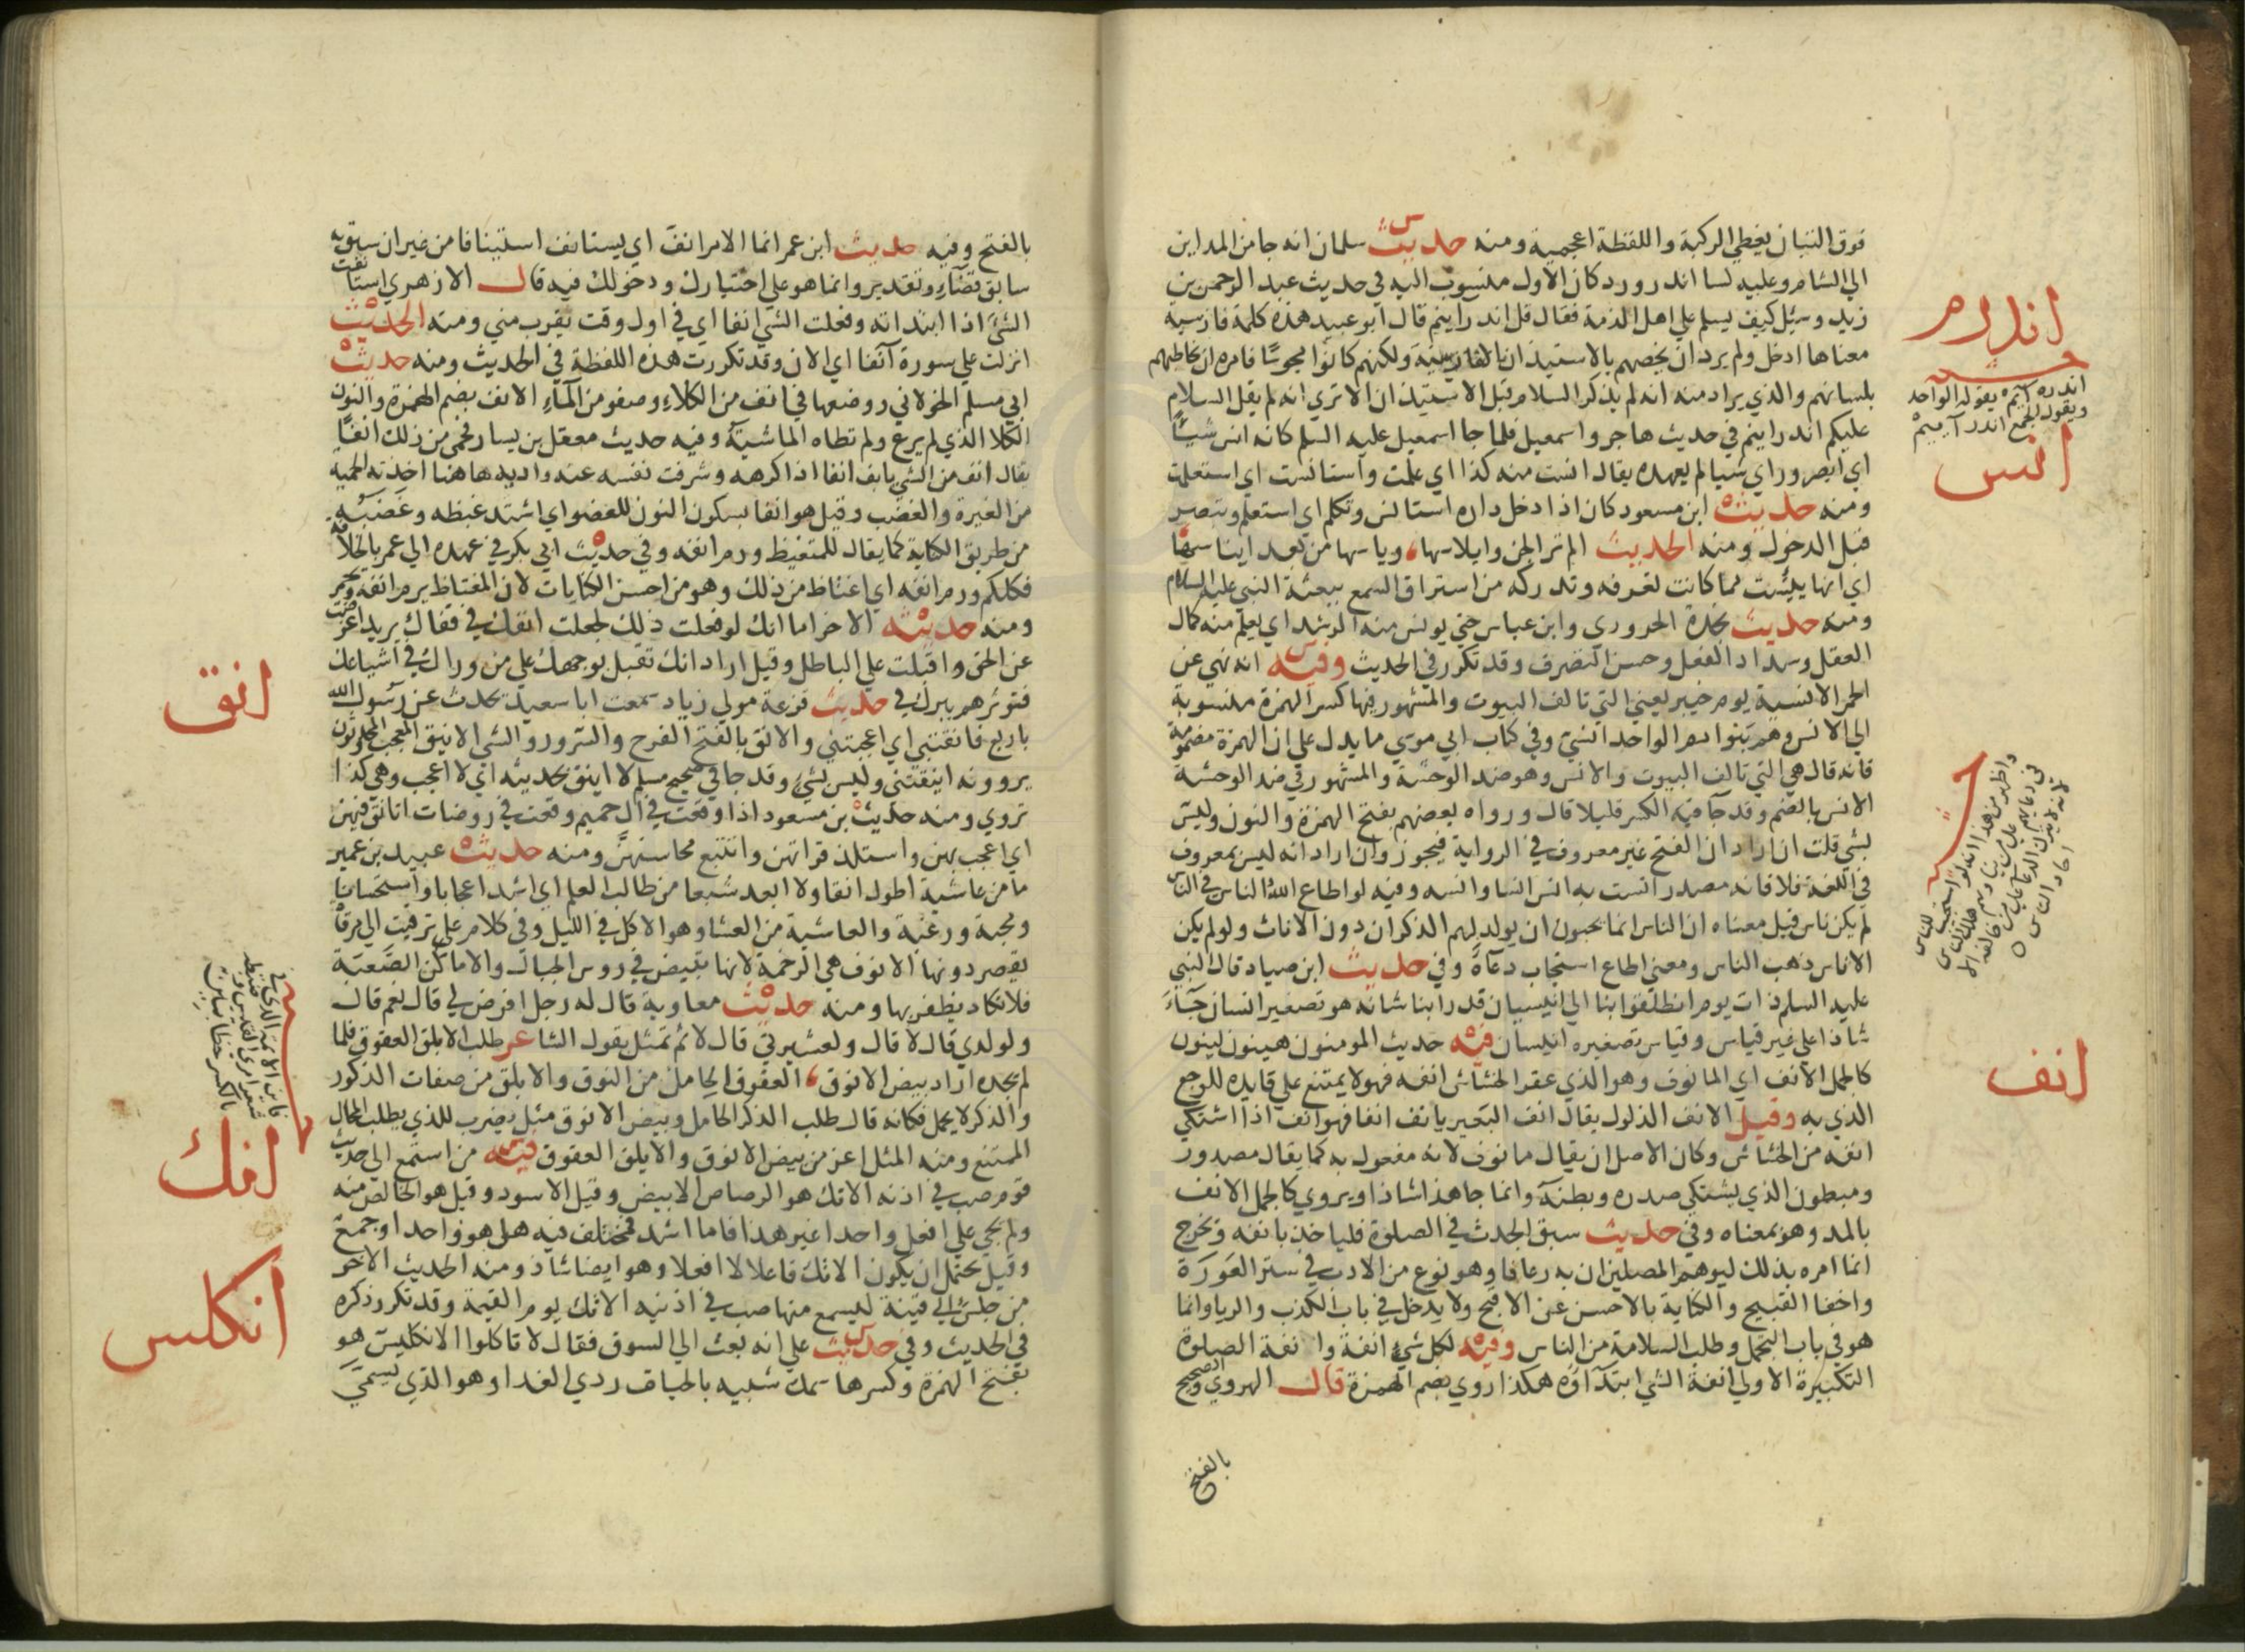 فوق التبان يغطي الركبة واللفظة اعجمية ومنه حديث سلمان انه جا من المداين
الي الشام وعليه كسا اندرورد كان الاول منسوب اليه في حديث عبد الرحمن بن
زيد وسئل كيف يسلم علي اهل الذمة فقال قل اندراينم قال ابو عبيد هذه كلمة فارسية
معناها ادخل ولم يرد ان يخصهم بالاستيذان بالفارسية ولكنهم كانوا مجوسًا فامره ان يخاطبهم
بلسانهم والذي يراد منه انه لم يذكر السلام قبل الاستيذان الا تري انه لم يقل السلام
عليكم اندراينم في حديث هاجر واسمعيل فلما جا اسمعيل عليه السلم كانه انس شيئًا
اي ابصر وراي شيا لم يعهده يقال انست منه كذا اي علمت واستانست اي استعلمت
ومنه حديث ابن مسعود كان اذا دخل داره استانس وتكلم اي استعلم وتبصر
قبل الدخول ومنه الحديث الم تر الجن وابلاسها، وياسها من بعد ايناسها
اي انها يئست مما كانت تعرفه وتدركه من استراق السمع ببعثة النبي عليه السلام
ومنه حديث نجدة الحروري وابن عباس حتي يونس منه الرشد اي يعلم منه كمال
العقل وسداد الفعل وحسن التصرف وقد تكرر في الحديث وفيه انه نهي عن
الحمر الانسية يوم خيبر يعني التي تالف البيوت والمشهور فيها كسر الهمزة منسوبة
الي الانس وهم بنوا ادم الواحد انسي وفي كتاب ابي موسي ما يدل علي ان الهمزة مضمومة
فانه قال هي التي تالف البيوت والانس وهو ضد الوحشة والمشهور في ضد الوحشة
الانس بالضم وقد جآ فيه الكسر قليلا قال ورواه بعضهم بفتح الهمزة والنون وليس
بشي قلت ان اراد ان الفتح غير معروف في الرواية فيجوز وان اراد انه ليس بمعروف
في اللغة فلا فانه مصدر انست به انس انسا وانسه وفيه لو اطاع الله الناس في الناس
لم يكن ناس قيل معناه ان الناس انما يحبون ان يولد لهم الذكران دون الاناث ولو لم يكن
الاناس ذهب الناس ومعني اطاع استجاب دعآه وفي حديث ابن صياد قال النبي
عليه السلم ذات يوم انطلقوا بنا الي انيسيان قد رابنا شانه هو تصغير انسان جآء
شاذا علي غير قياس وقياس تصغيره انيسان فيه حديث المومنون هينون لينون
كالجمل الانف اي المانوف وهو الذي عقر الخشاش انفه فهو لا يمتنع علي قايده للوجع
الذي به وقيل الانف الذلول يقال انف البعير يانف انفا فهو انف اذا اشتكي
انفه من الخشاش وكان الاصل ان يقال مانوف لانه مفعول به كما يقال مصدور
ومبطون الذي يشتكي صدره وبطنه وانما جا هذا شاذا ويروي كالجمل الانف
بالمد وهو بمعناه وفي حديث سبق الحدث في الصلوة فلياخذ بانفه ويخرج
انما امره بذلك ليوهم المصلين ان به رعافا وهو نوع من الادب في ستر العورة
واخفا القبيح والكناية بالاحسن عن الاقبح ولا يدخل في باب الكذب والريا وانما
هو في باب التجمل وطلب السلامة من الناس وفيه لكل شي انفة وانفة الصلوة
التكبيرة الاولي انفة الشي ابتدآؤه هكذا روي بضم الهمزة قال الهروي والصحيح
بالفتح
اندرم
اندره آيم يقوله الواحد
ويقول الجمع اندر آييم
انس
انف
بالفتح وفيه حديث ابن عمر انما الامر انف اي يستانف استينافا من غير ان سبق به
سابق قضآء وتقدير وانما هو علي اختيارك ودخولك فيه قال الازهري استانفت
الشي اذا ابتداته وفعلت الشي انفا اي في اول وقت يقرب مني ومنه الحديث
انزلت علي سورة آنفا اي الان وقد تكررت هذه اللفظة في الحديث ومنه حديث
ابي مسلم الخولاني ووضعها في انف من الكلاء وصفو من المآء الانف بضم الهمزة والنون
الكلا الذي لم يرع ولم تطاه الماشية وفيه حديث معقل بن يسار فحمي من ذلك انفًا
يقال انف من الشي يانف انفا اذا كرهه وشرفت نفسه عنه واراد به هاهنا اخذته الحمية
من الغيرة والغضب وقيل هو انفا بسكون النون للعضو اي اشتد غيظه وغضبه
من طريق الكناية كما يقال للمتغيظ ورم انفه وفي حديث ابي بكر في عهده الي عمر بالخلافة
فكلكم ورم انفه اي اغتاظ من ذلك وهو من احسن الكنايات لان المغتاظ يرم انفه ويحمر
ومنه حديثه الاخر اما انك لو فعلت ذلك لجعلت انفك في قفاك يريد اعرضت
عن الحق واقبلت علي الباطل وقيل اراد انك تقبل بوجهك علي من وراك في اشياعك
فتوثرهم ببرك في حديث قزعة مولي زياد سمعت ابا سعيد يحدث عن رسول الله
باربع فانقنني اي اعجبنني والانق بالفتح الفرح والسرور والشي الانيق المعجب والمحدثون
يروونه اينقنني وليس بشي وقد جا في صحيح مسلم لا اينق بحديثه اي لا اعجب وهي كذا
تروي ومنه حديث بن مسعود اذا وقعت في آل حميم وقعت في روضات اتانق فيهن
اي اعجب بهن واستلذ قراتهن واتتبع محاسنهن ومنه حديث عبيد بن عمير
ما من عاشية اطول انقا ولا ابعد شبعا من طالب العلم اي اشد اعجابا واستحسانا
ومحبة ورغبة والعاشية من العشا وهو الاكل في الليل وفي كلام علي ترقيت الي مرقاة
يقصر دونها الانوق هي الرخمة لانها تبيض في روس الجبال والاماكن الصعبة
فلا تكاد يظفر بها ومنه حديث معاوية قال له رجل افرض لي قال نعم قال
ولولدي قال لا قال ولعشيرتي قال لا ثم تمثل بقول الشاعر طلب الابلق العقوق فلما
لم يجده اراد بيض الانوق، العقوق الحامل من النوق والابلق من صفات الذكور
والذكر لا يحمل فكانه قال طلب الذكر الحامل وبيض الانوق مثل يضرب للذي يطلب المحال
الممتنع ومنه المثل اعز من بيض الانوق والابلق العقوق فيه من استمع الي حديث
قوم صب في اذنه الانك هو الرصاص الابيض وقيل الاسود وقيل هو الخالص منه
ولم يجي علي افعل واحدا غير هذا فاما اشد فمختلف فيه هل هو واحد او جمع
وقيل يحتمل ان يكون الانك فاعلا لا افعلا وهو ايضا شاذ ومنه الحديث الاخر
من جلس الي قينة ليسمع منها صب في اذنيه الانك يوم القيمة وقد تكرر ذكره
في الحديث وفي حديث علي انه بعث الي السوق فقال لا تاكلوا الانكليس هو
بفتح الهمزة وكسرها سمك شبيه بالحيات ردي الغذا وهو الذي يسمي
انق
انك
انكلس